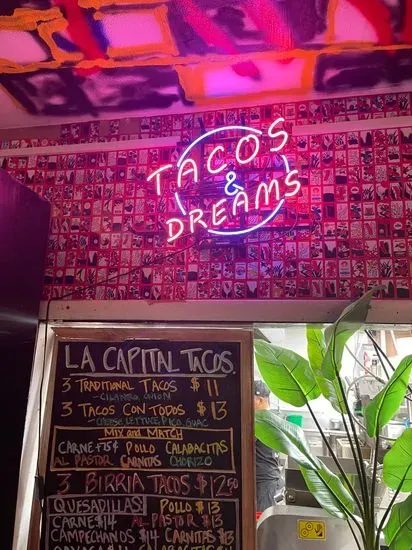 TACOS
&
DREAMS
LA CAPITAL TACOS
3 TRADITIONAL TACOS $11
-CILANTRO ONION
3 TACOS CON TODOS $13
-CHEESE LETTUCE PICO GUAC
MIX AND MATCH
CARNE +75¢ POLLO CALABACITAS
AL PASTOR CARNITAS CHORIZO
3 BIRRIA TACOS $12.50
QUESADILLAS! POLLO $13
CARNE $14 AL PASTOR $13
CAMPECHANOS $14 CARNITAS $13